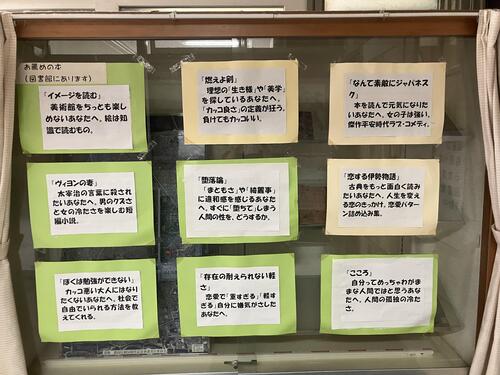 お薦めの本
(図書館にあります)
「イメージを読む」
美術館をちっとも楽し
めないあなたへ。絵は知
識で読むもの。
「燃えよ剣」
理想の「生き様」や「美学」
を探しているあなたへ。
「カッコ良さ」の定義が狂う。
負けてもカッコいい。
「なんて素敵にジャパネス
ク」
本を読んで元気になりた
いあなたへ。女の子は強い。
傑作平安時代ラブ・コメディ。
「ヴィヨンの妻」
太宰治の言葉に殺され
たいあなたへ。男のクズさ
と女の冷たさを楽しむ短
編小説。
「堕落論」
「まともさ」や「綺麗事」
に違和感を感じるあなた
へ。すぐに「堕ちて」しまう
人間の性を、どうするか。
「恋する伊勢物語」
古典をもっと面白く読み
たいあなたへ。人生を変え
る恋のきっかけ。恋愛パター
ン詰め込み集。
「ぼくは勉強ができない」
カッコ悪い大人にはなり
たくないあなたへ。社会で
自由でいられる方法を教
えてくれる。
「存在の耐えられない軽
さ」
恋愛で「重すぎる」「軽す
ぎる」自分に嫌気がさした
あなたへ。
「こころ」
自分ってめっちゃわがま
まな人間ではと思うあな
たへ。人間の孤独の冷た
さ。